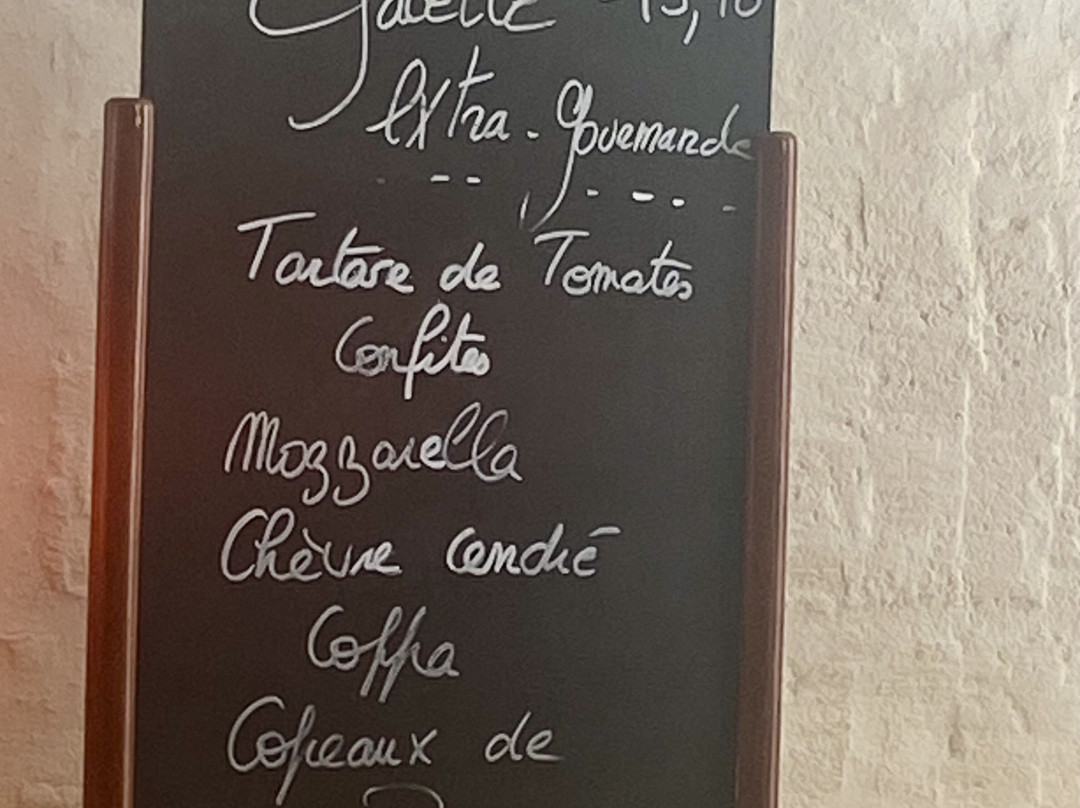 Galette
Extra-Gourmande
Tartare de Tomates
Confites
Mozzarella
Chèvre cendré
Coppa
Copeaux de